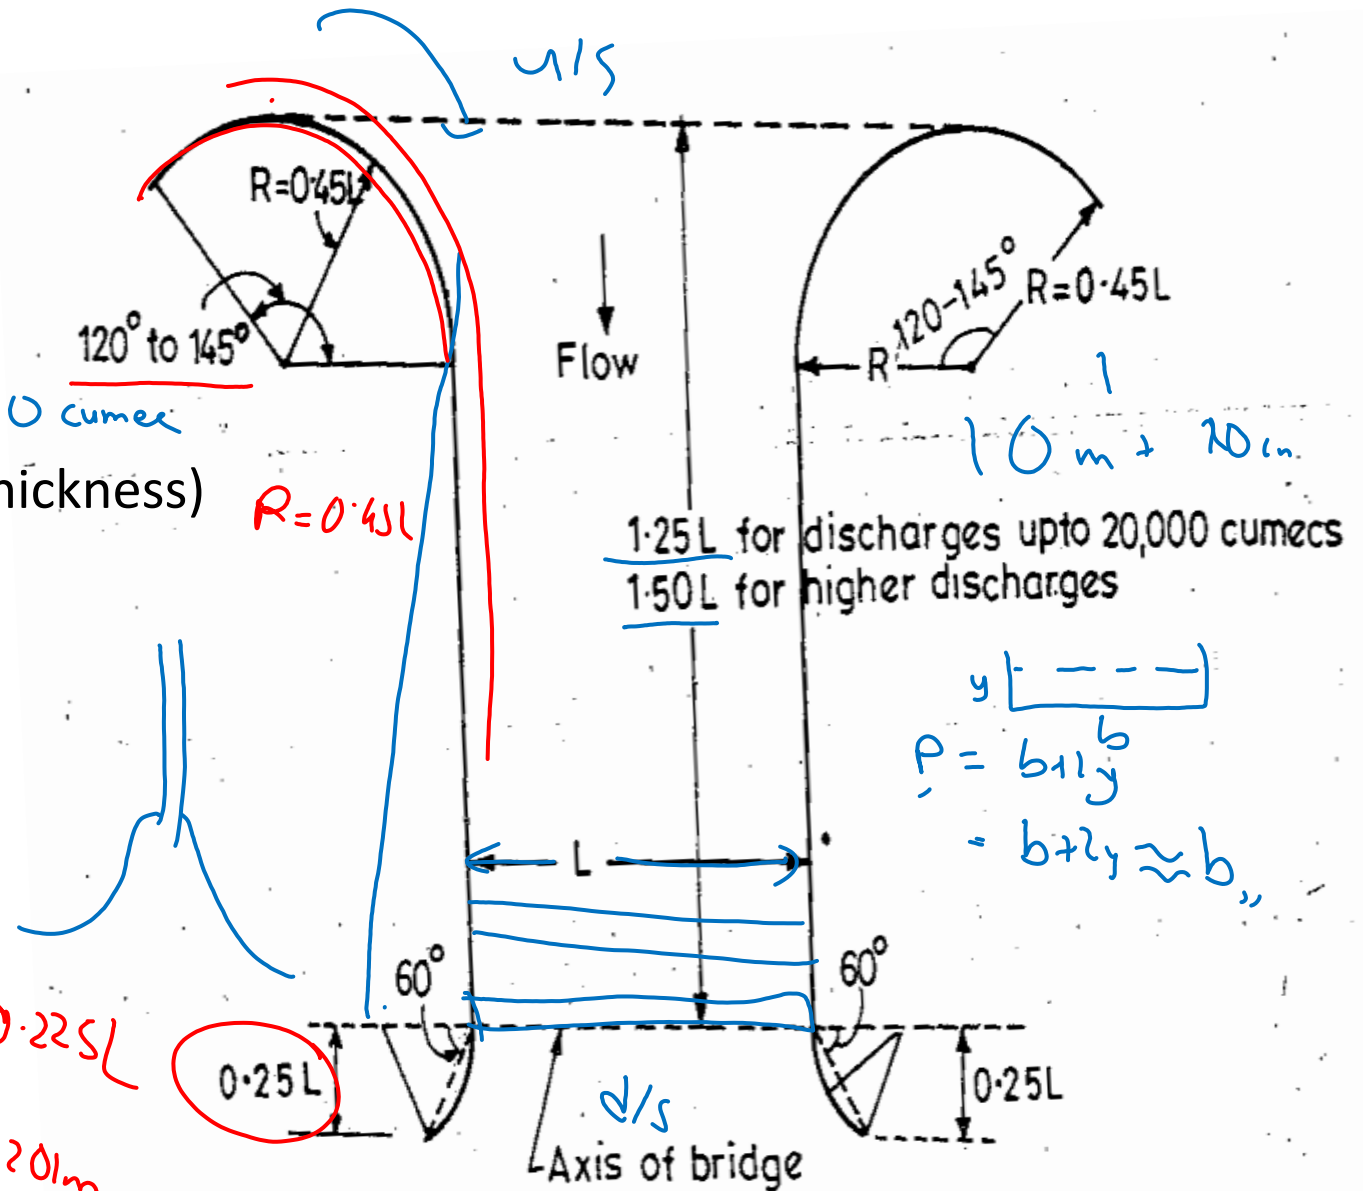 u/s
R=0.45L
120° to 145°
Flow
R
120-145°
R=0.45L
0 cumec
hickness)
R=0.45L
10 m
1.25L for discharges upto 20,000 cumecs
1.50L for higher discharges
y
b
P = b+2y
= b+2y ≈ b
L
60°
60°
0.225L
0.25L
0.25L
d/s
Axis of bridge
201m